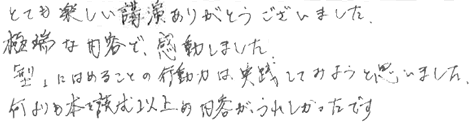 とても楽しい講演ありがとうございました。
極端な内容で、感動しました。
「型」にはめることの行動力は、実践してみようと思いました。
何よりも本を読む以上の内容がうれしかったです